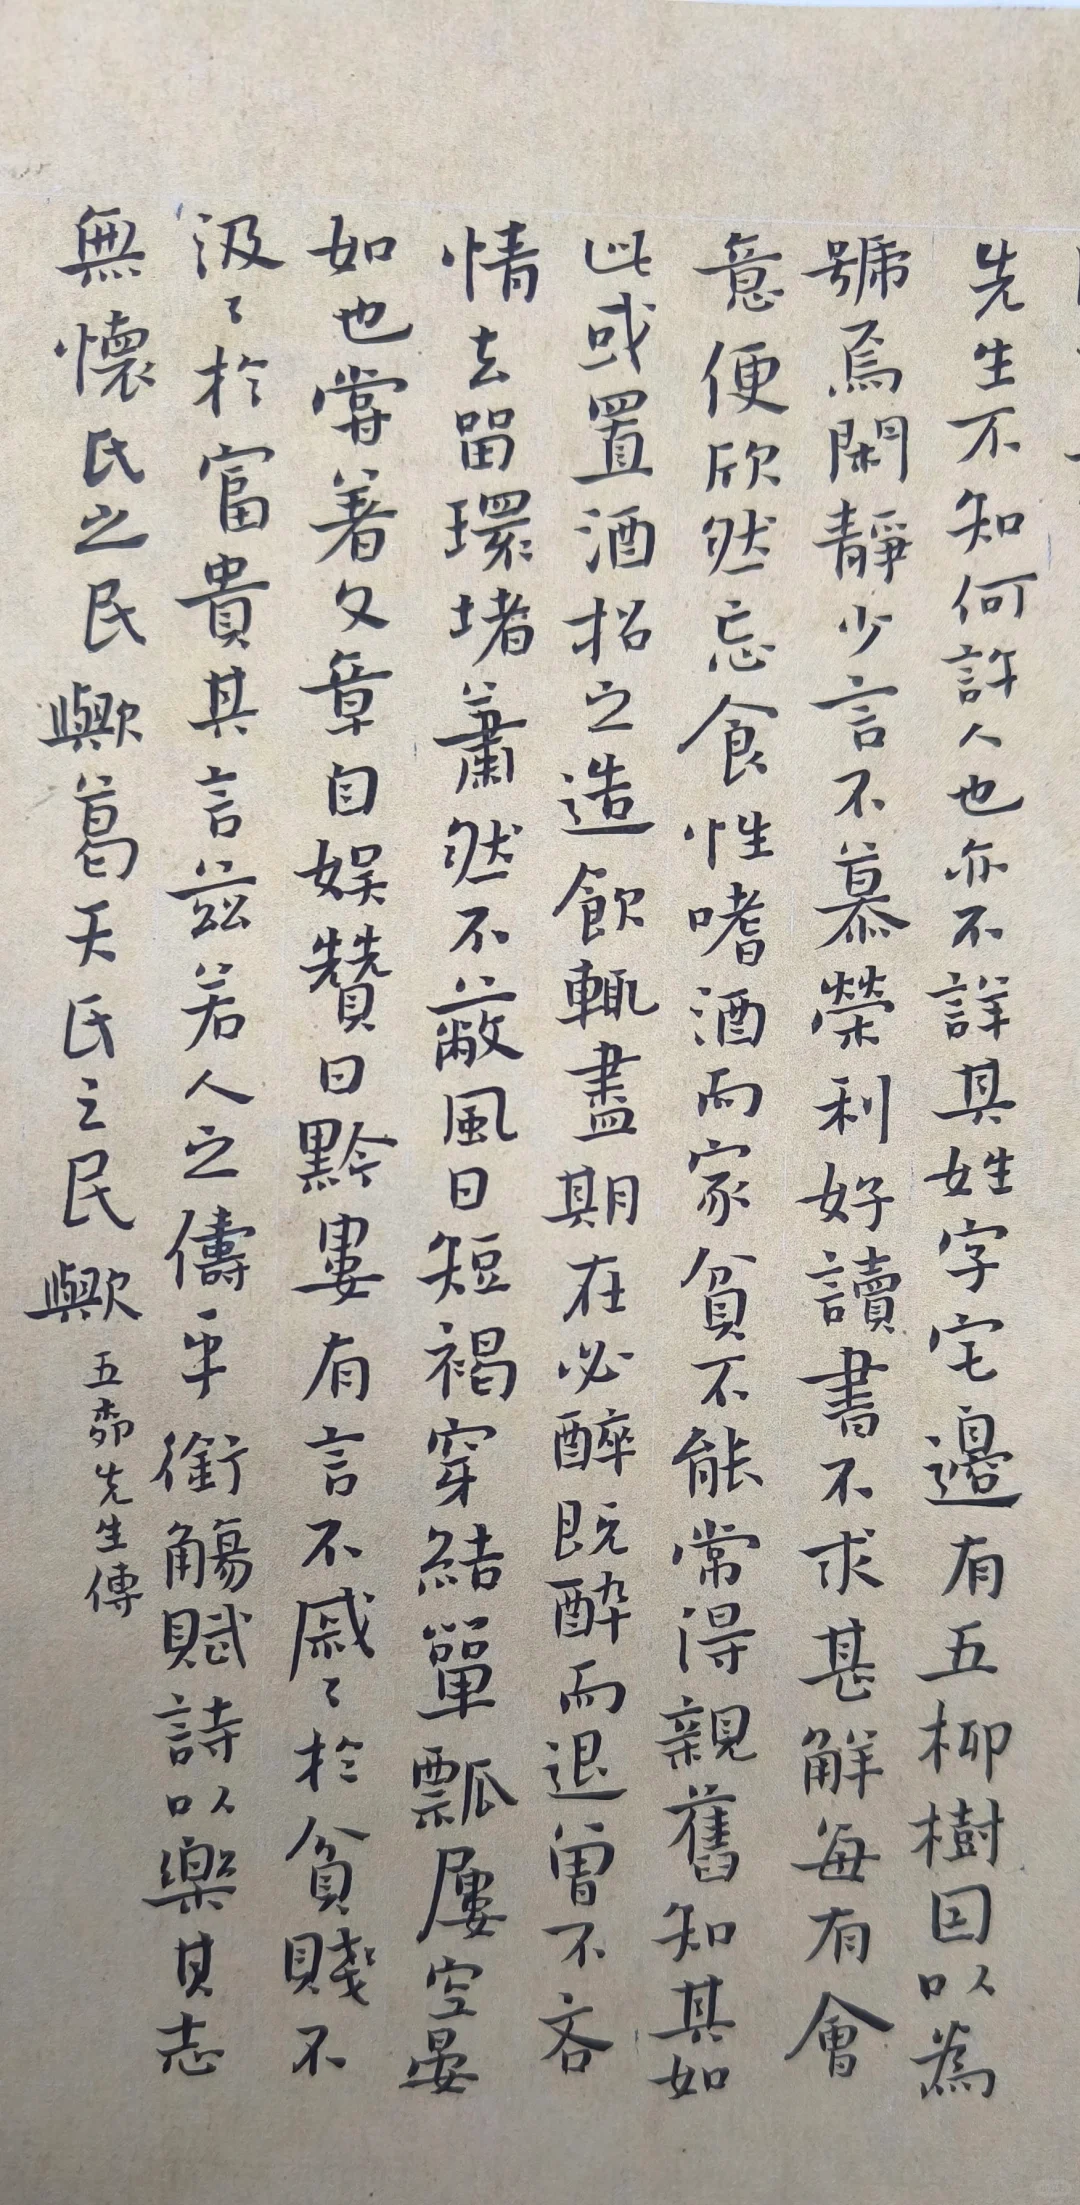 先生不知何許人也亦不詳其姓字宅邊有五柳樹因以為
號焉閑靜少言不慕榮利好讀書不求甚解每有會
意便欣然忘食性嗜酒而家貧不能常得親舊知其如
此或置酒招之造飲輒盡期在必醉既醉而退曾不吝
情去留環堵蕭然不蔽風日短褐穿結簞瓢屢空晏
如也嘗著文章自娛贊曰黔婁有言不戚〻於貧賤不
汲〻於富貴其言茲若人之儔乎銜觴賦詩以樂其志
無懷氏之民歟葛天氏之民歟
五柳先生傳